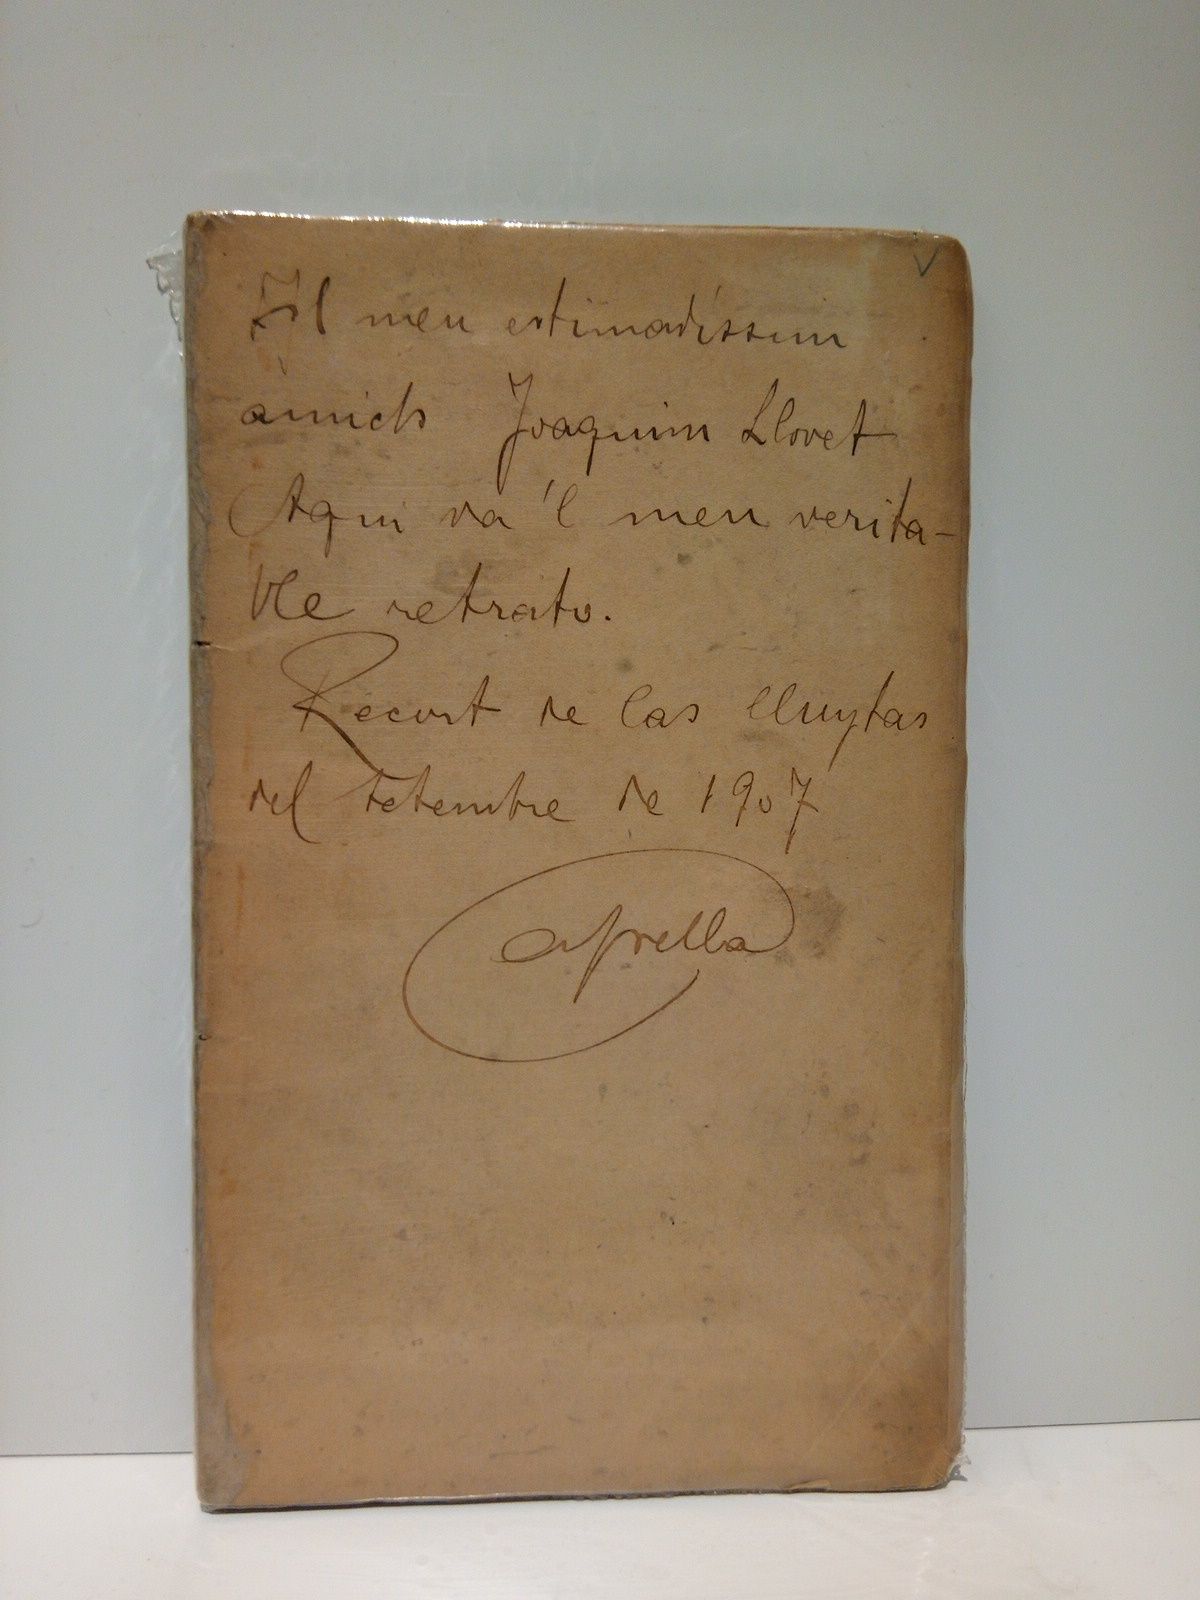 Al meu estimadíssim
amich Joaquim Llovet
Aqui va 'l meu verita-
ble retrato.
Recort de las lluytas
del setembre de 1907